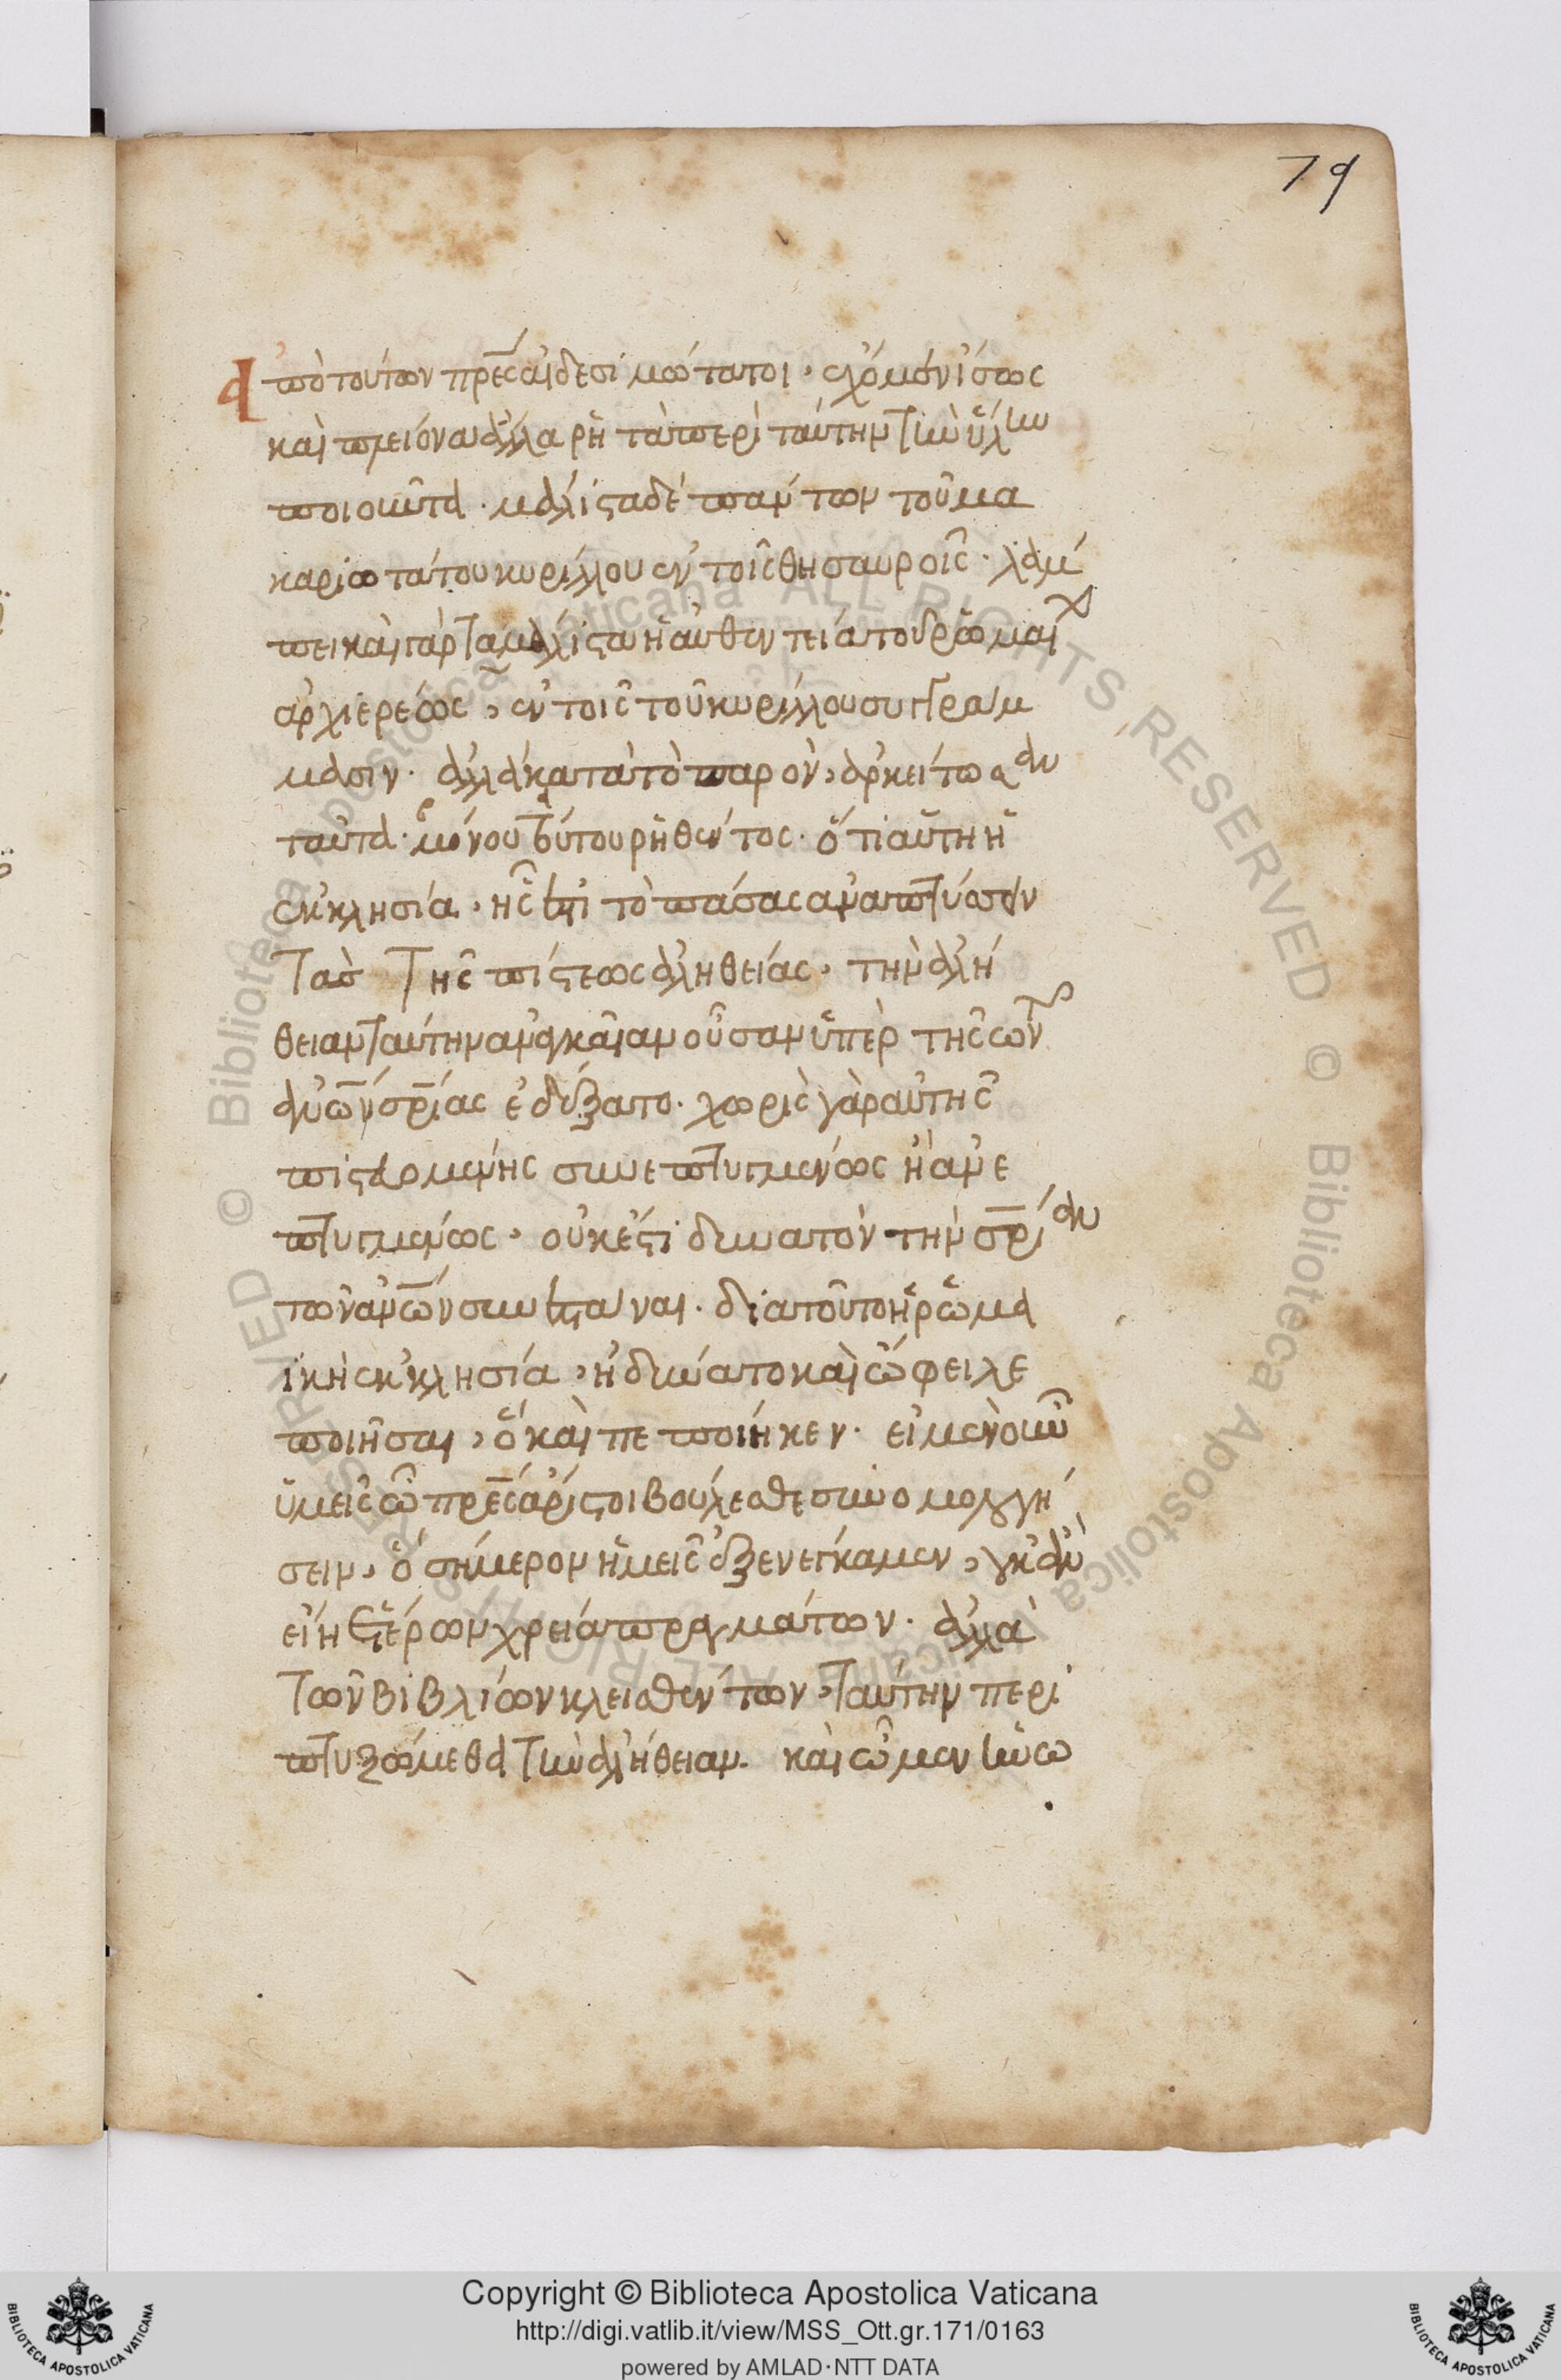 79
ἀπὸ τούτων πρες αἰδεσιμώτατοι, ἔχομεν ἴσως
καὶ πλείονα ἄλλα ῥῆτὰ περὶ ταύτην τὴν ὕλην
ποιοῦντα. μάλιστα δὲ πάντων τοῦ μα
καριωτάτου κυρίλλου ἐν τοῖς θησαυροῖς. λάμ
πει καὶ γὰρ τὰ μάλιστα ἡ αὐθεντεία τοῦ ῥωμαϊκ
ἀρχιερέως, ἐν τοῖς τοῦ κυρίλλου συγγράμ
μασιν. ἀλλὰ κατὰ τὸ παρὸν, ἀρκείτωσαν
ταῦτα. μόνου τούτου ῥηθέντος. ὅτι αὕτη ἡ
ἐκκλησία, ἧς ἐστὶ τὸ πάσας ἀναπτύσσειν
τὰς τῆς πίστεως ἀληθείας, τὴν ἀλή
θειαν ταύτην ἀναγκαίαν οὖσαν ὑπὲρ τῆς τῶν
ἀνῶν σρίας ἐδείξατο. χωρὶς γὰρ αὐτῆς
πιστευομένης συνεπτυγμένως ἢ ἀνε
πτυγμένως, οὐκ ἔστι δυνατὸν τὴν σρίαν
τῶν ἀνῶν συνιστάναι. διὰ τοῦτο ἡ ῥωμα
ϊκὴ ἐκκλησία, ἠδύνατο καὶ ὤφειλε
ποιῆσαι, ὃ καὶ πεποίηκεν. εἰ μὲν οὖν
ὑμεῖς ὦ πρες ἄριστοι βούλεσθε συνομολογή
σειν, ὃ σήμερον ἡμεῖς ἐξενέγκαμεν, οὐκ ἂν
εἴη ἑτέρων χρεία πραγμάτων. ἀλλὰ
τῶν βιβλίων κλεισθέντων, ταύτην περι
πτυξώμεθα τὴν ἀλήθειαν. καὶ ὦμεν ἡνω
Copyright © Biblioteca Apostolica Vaticana
http://digi.vatlib.it/view/MSS_Ott.gr.171/0163
powered by AMLAD·NTT DATA
BIBLIOTECA APOSTOLICA VATICANA
BIBLIOTECA APOSTOLICA VATICANA
© Biblioteca Apostolica Vaticana ALL RIGHTS RESERVED
© Biblioteca Apostolica Vaticana ALL RIGHTS RESERVED